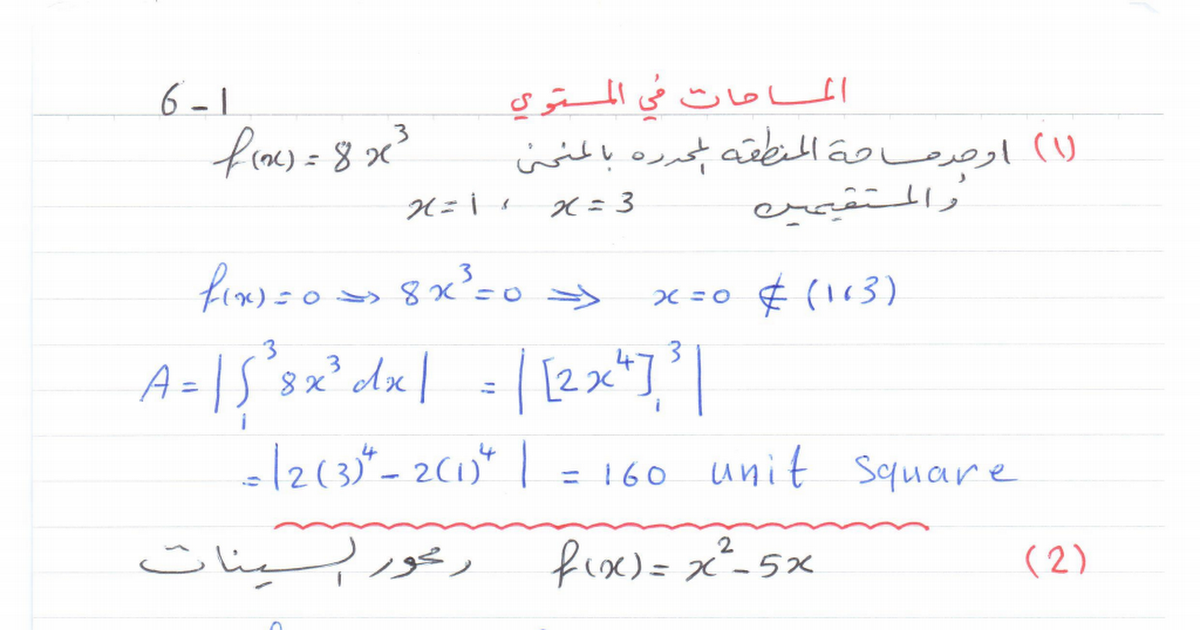 المساحات في المستوي 6-1
(1) اوجد مساحة المنطقه المحدده بالمنحنى f(x) = 8x³
والمستقيمين x=1 ، x=3
f(x)=0 ⇒ 8x³=0 ⇒ x=0 ∉ (1،3)
A = |∫₁³ 8x³ dx| = |[2x⁴]₁³|
= |2(3)⁴ - 2(1)⁴| = 160 unit square
(2) f(x) = x² - 5x ومحور السينات